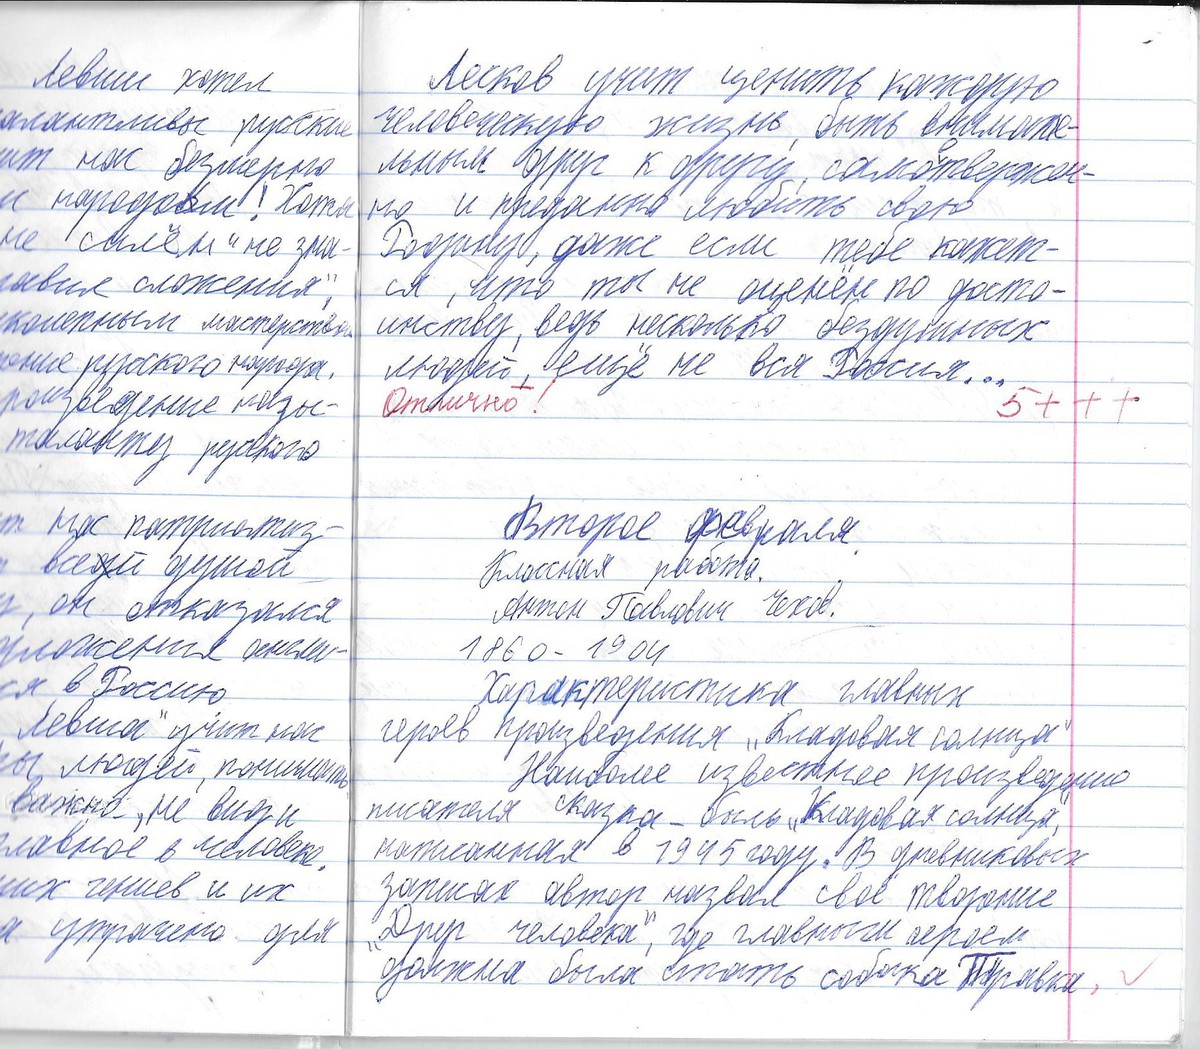 Левши хотел
алантливы русские
ит нас безмерно
и народом! Хотя
не силён и не зна-
авил сложения",
мастерством
русского народа.
произведение назы-
таланту русского
нас патриотиз-
всей душой
он отказался
англи-
ся в Россию
Левша" учит нас
людей, понимать
важно, не видя
главное в человеке.
их гениев и их
а утрачено для
Лесков учит ценить каждую
человеческую жизнь, быть внимате-
льным друг к другу, самотвержен-
но и преданно любить свою
Родину, даже если тебе кажет-
ся, что ты не оценён по досто-
инству, ведь несколько бездушных
людей, ещё не вся Россия...
Отлично! 5+++
Второе февраля.
Классная работа.
Антон Павлович Чехов.
1860-1904
Характеристика главных
героев произведения „Кладовая солнца"
Наиболее известное произведение
писателя сказка - быль „Кладовая солнца",
написанная в 1945 году. В дневниковых
записях автор назвал своё творение
„Друг человека", где главным героем
должна была стать собака Травка.